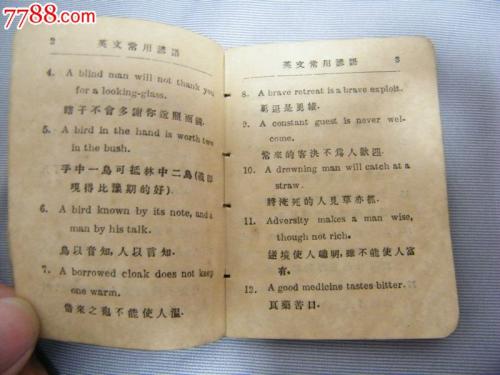 7788.com
2 英文常用諺語
4. A blind man will not thank you
for a looking-glass.
瞎子不會多謝你送照面鏡.
5. A bird in the hand is worth two
in the bush.
手中一鳥可抵林中二鳥
現得比讓期的好).
6. A bird known by its note, and a
man by his talk.
鳥以音知,人以言知.
7. A borrowed cloak does not keep
one warm.
借來之袍不能使人溫.
英文常用諺語 3
8. A brave retreat is a brave exploit.
是勇績.
9. A constant guest is never wel-
come.
常來的客決不爲人歡迎.
10. A drowning man will catch at a
straw.
將淹死的人見草亦抓.
11. Adversity makes a man wise,
though not rich.
逆境使人聰明,雖不能使人富
有.
12. A good medicine tastes bitter.
良藥苦口.